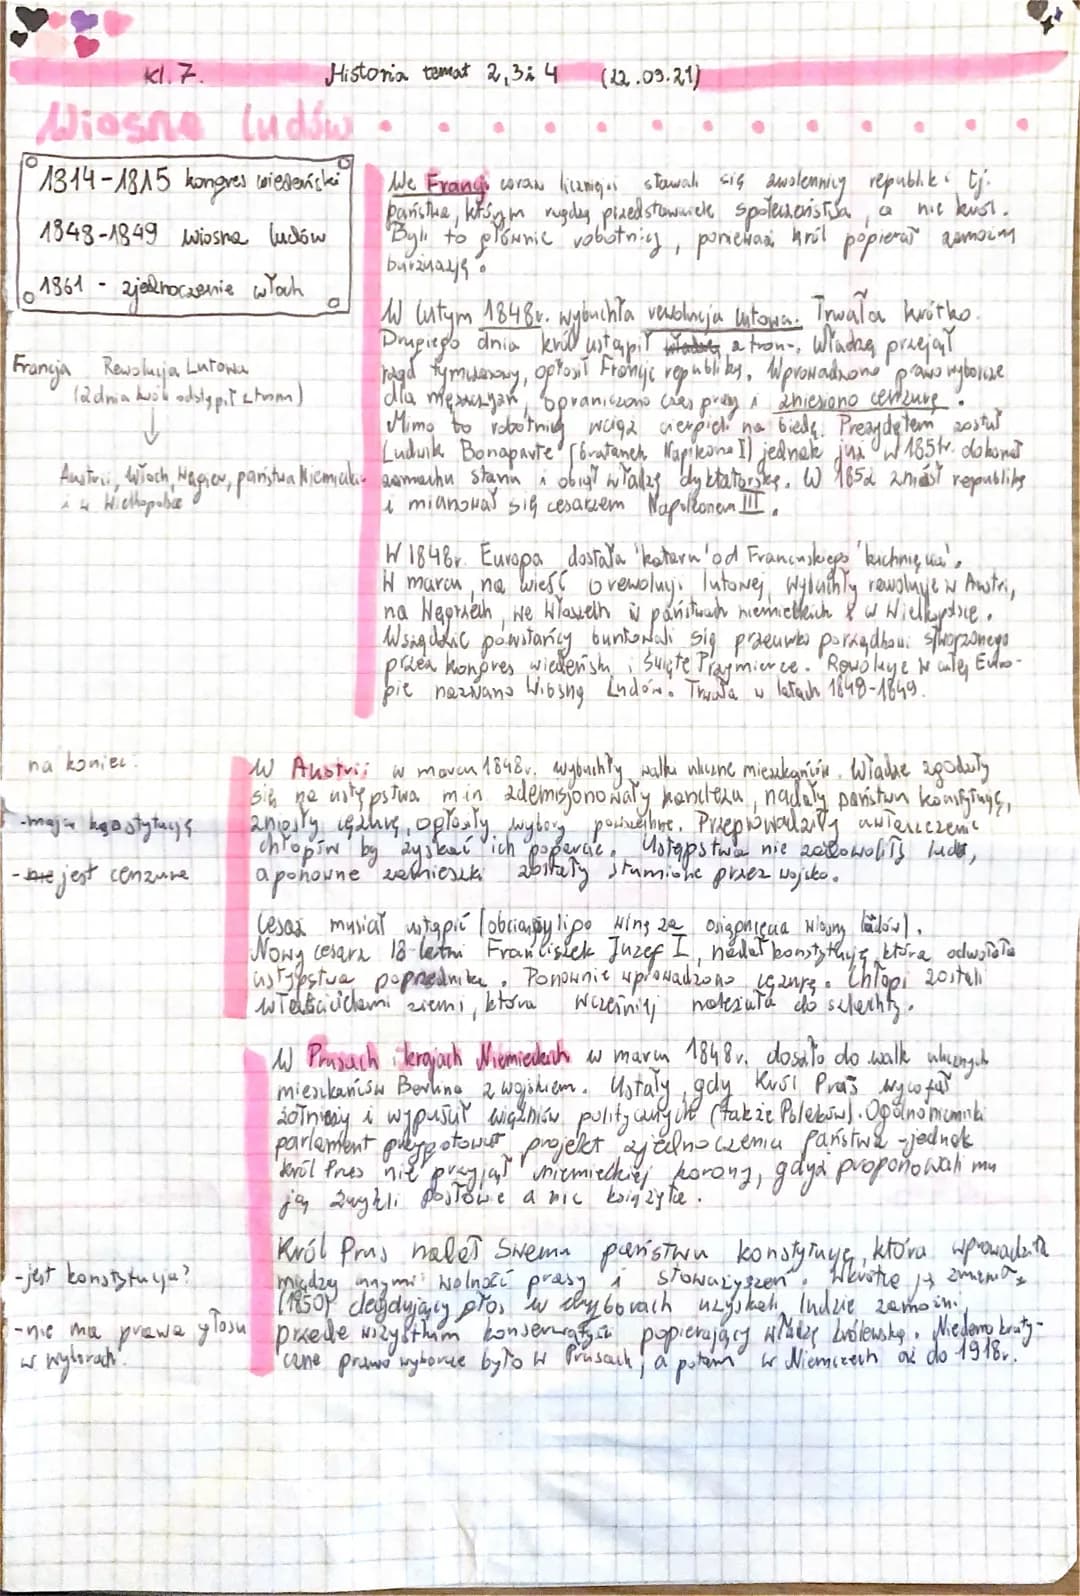 Kl. 7. Historia temat 2, 3 i 4 (22.09.21)
Wiosna Ludów
1814-1815 kongres wiedeński
1848-1849 wiosna ludów
1861 - zjednoczenie włoch
Francja Rewolucja Lutowa
(2 dnia król odstąpił z tronu)
Austrii, Włoch, Węgier, państwa Niemiecki
i w Wielkopolsce
We Francji coraz liczniejsi stawali się zwolennicy republiki tj.
państwa, którym rządzą przedstawiciele społeczeństwa, a nie król.
Byli to głównie robotnicy, ponieważ król popierał zamożną
burżuazję.
W lutym 1848r. wybuchła rewolucja lutowa. Trwała krótko.
Drugiego dnia król ustąpił z tronu. Władzę przejął
rząd tymczasowy, ogłosił Francję republiką. Wprowadzono prawo wyborcze
dla mężczyzn, ograniczono czas pracy i zniesiono cenzurę.
Mimo to robotnicy wciąż cierpieli na biedę. Prezydętem został
Ludwik Bonaparte (bratanek Napoleona I) jednak już w 1851r. dokonał
zamachu stanu i objął władzę dyktatorską. W 1852 zniósł republikę
i mianował się cesarzem Napoleonem III.
W 1848r. Europa dostała 'kataru' od Francuskiego 'kichnięcia'.
W marcu, na wieść o rewolucji lutowej, wybuchły rewolucje w Austri,
na Węgrzech, we Włoszech i w państwach niemieckich i w Wielkopolsce.
Wszędzie powstańcy buntowali się przeciwko porządkowi stworzonego
przez kongres wiedeński i Święte Przymierze. Rewolucje w całej Euro-
pie nazwano Wiosną Ludów. Trwała w latach 1848-1849.
na koniec:
- mają konstytucję
- jest cenzura
W Austrii w marcu 1848r. wybuchły walki uliczne mieszkańców. Władze zgodziły
się na ustępstwa min. zdemisjonowały kanclerza, nadały państwu konstytucję,
zniosły cęzurę, ogłosiły wybory powszechne. Przeprowadziły uwłaszczenie
chłopów by zyskać ich poparcie. Ustępstwa nie zadowoliły ludu,
a ponowne zamieszki zostały stłumione przez wojsko.
Cesaż musiał ustąpić (obciążyli go winą za osiągnięcia wiosny ludów).
Nowy cesarz 18-letni Franciszek Juzef I, nadał konstytucję, która odwołała
ustępstwa poprzednika. Ponownie wprowadzono cęzurę. Chłopi zostali
właścicielami ziemi, która wcześniej należała do szlachty.
W Prusach i krajach Niemieckich w marcu 1848r. doszło do walk ulicznych
mieszkańców Berlina z wojskiem. Ustały, gdy Król Prus wycofał
żołnierzy i wypuścił więźniów politycznych (także Polaków). Ogólnoniemiecki
parlament przygotował projekt zjednoczenia państwa - jednak
król Prus nie przyjął niemieckiej korony, gdyż proponowali mu
ją zwykli posłowie a nie książęta.
- jest konstytucja?
- nie ma prawa głosu
w wyborach.
Król Prus nadał swemu państwu konstytucję, która wprowadziła
między innymi wolność prasy i stowarzyszeń. Wkrótce ją zmieniono
(1850) decydujący głos w wyborach uzyskali ludzie zamożni,
przede wszystkim konserwatyści popierający władzę królewską. Niedemokraty-
czne prawo wyborcze było w Prusach, a potem w Niemczech aż do 1918r.